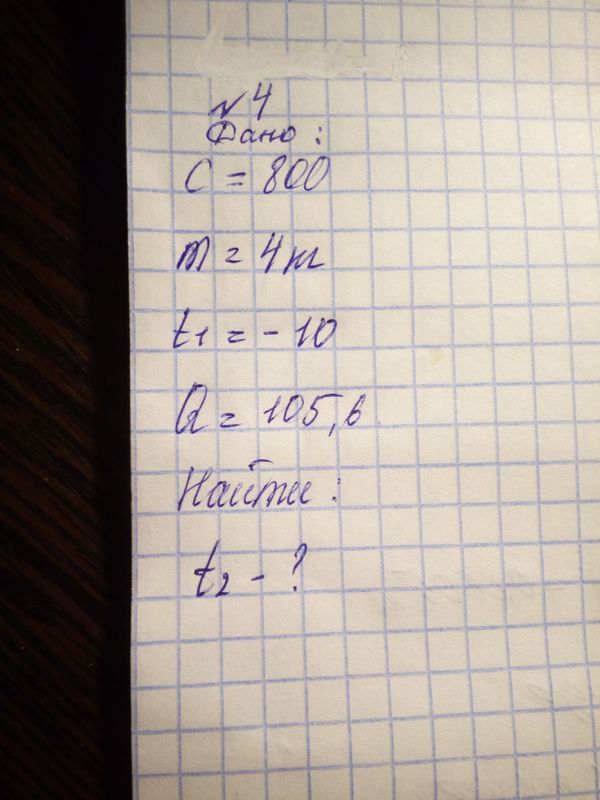 №4
Дано:
C = 800
m = 4 кг
t1 = -10
Q = 105,6
Найти:
t2 - ?